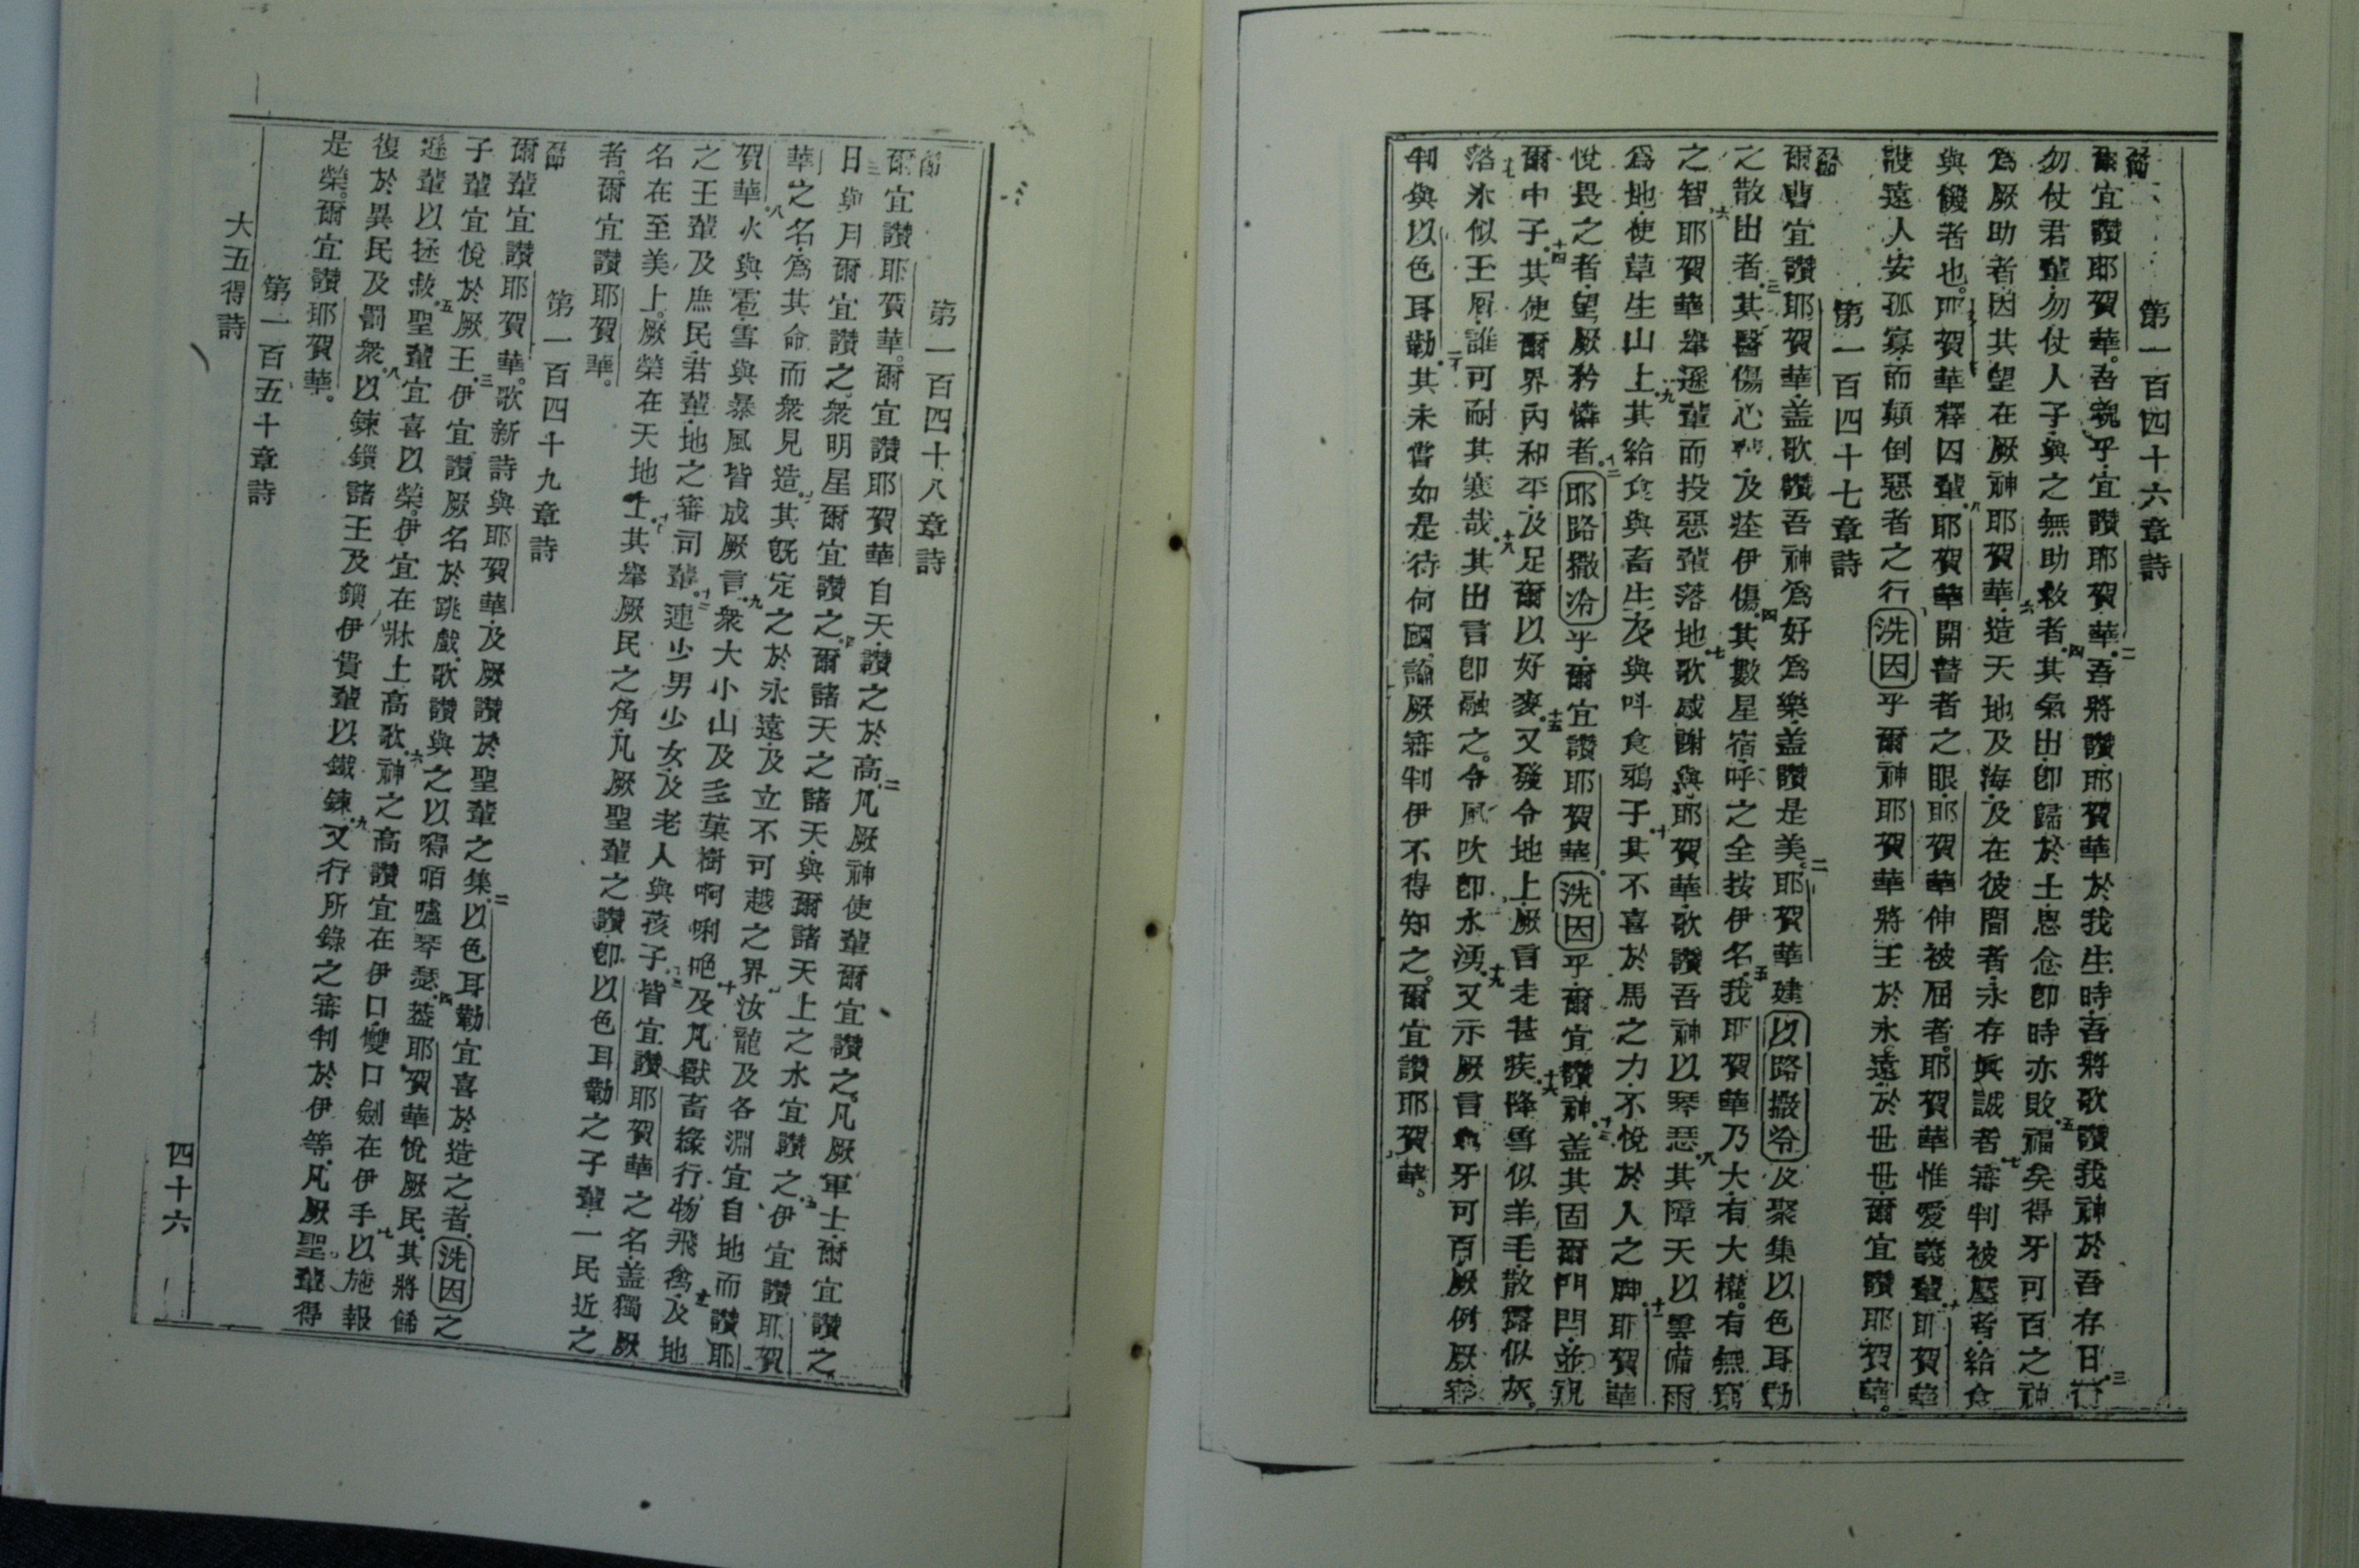 第一百四十六章詩
節一
爾宜讚耶賀華。吾魂乎宜讚耶賀華。二吾將讚耶賀華於我生時吾將歌讚我神於吾存日 三
勿仗君輩勿仗人子與之無助救者。四其氣出卽歸於土思念卽時亦敗五福矣得牙可百之神
爲厥助者因其望在厥神耶賀華六造天地及海及在彼間者永存眞誠者七審判被壓者給食
與饑者也。耶賀華釋囚輩八耶賀華開瞽者之眼耶賀華伸被屈者。耶賀華惟愛義輩耶賀華
護遠人安孤寡而顛倒惡者之行十洗因乎爾神耶賀華將王於永遠於世世爾宜讚耶賀華。
第一百四十七章詩
節
爾曹宜讚耶賀華盖歌讚吾神爲好爲樂盖讚是美。二耶賀華建以路撒冷及聚集以色耳勒
之散出者。三其醫傷心輩及痊伊傷。四其數星宿呼之全按伊名。五我耶賀華乃大有大權。有無窮
之智六耶賀華舉遜輩而投惡輩落地七歌感謝與耶賀華歌讚吾神以琴瑟八其障天以雲備雨
爲地使草生山上九其給食與畜生及與呌食鴉子十其不喜於馬之力不悅於人之脚十一耶賀華
悅畏之者望厥矜憐者。十二耶路撒冷乎爾宜讚耶賀華。洗因乎爾宜讚神十三盖其固爾門閂並祝
爾中子。十四其使爾界內和平及足爾以好麥。十五又發令地上厥言走甚疾十六降雪似羊毛散露似灰。
十七落氷似玉屑誰可耐其寒哉十八其出言卽融之。令風吹卽水湧十九又示厥言與牙可百厥例厥審
判與以色耳勒。二十其未嘗如是待何國論厥審判伊不得知之。爾宜讚耶賀華。
第一百四十八章詩
節
爾宜讚耶賀華。爾宜讚耶賀華自天讚之於高。二凡厥神使輩爾宜讚之。凡厥軍士爾宜讚之。
三日與月爾宜讚之。衆明星爾宜讚之。四爾諸天之諸天與爾諸天上之水宜讚之五伊宜讚耶賀
華之名爲其命而衆見造。六其既定之於永遠及立不可越之界七汝龍及各淵宜自地而讚耶
賀華。八火與雹雪與暴風皆成厥言。九衆大小山及菓樹啊唎吧十及凡獸畜緣行物飛禽及地
之王輩及庶民君輩地之審司輩。十二連少男少女及老人與孩子。十三皆宜讚耶賀華之名盖獨厥
名在至美上。厥榮在天地上十四其舉厥民之角凡厥聖輩之讚卽以色耳勒之子輩一民近之
者。爾宜讚耶賀華。
第一百四十九章詩
節
爾輩宜讚耶賀華。歌新詩與耶賀華及厥讚於聖輩之集。二以色耳勒宜喜於造之者洗因之
子輩宜悅於厥王。三伊宜讚厥名於跳戲。歌讚與之以嘚咟嚧琴瑟。四葢耶賀華悅厥民。其將餙
遜輩以拯救五聖輩宜喜以榮。伊宜在牀上高歌。六神之高讚宜在伊口雙口劍在伊手七以施報
復於異民及罰衆。八以鍊鎖諸王及鎖伊貴輩以鐵鍊九又行所錄之審判於伊等。凡厥聖輩得
是榮。爾宜讚耶賀華。
第一百五十章詩
大五得詩
四十六